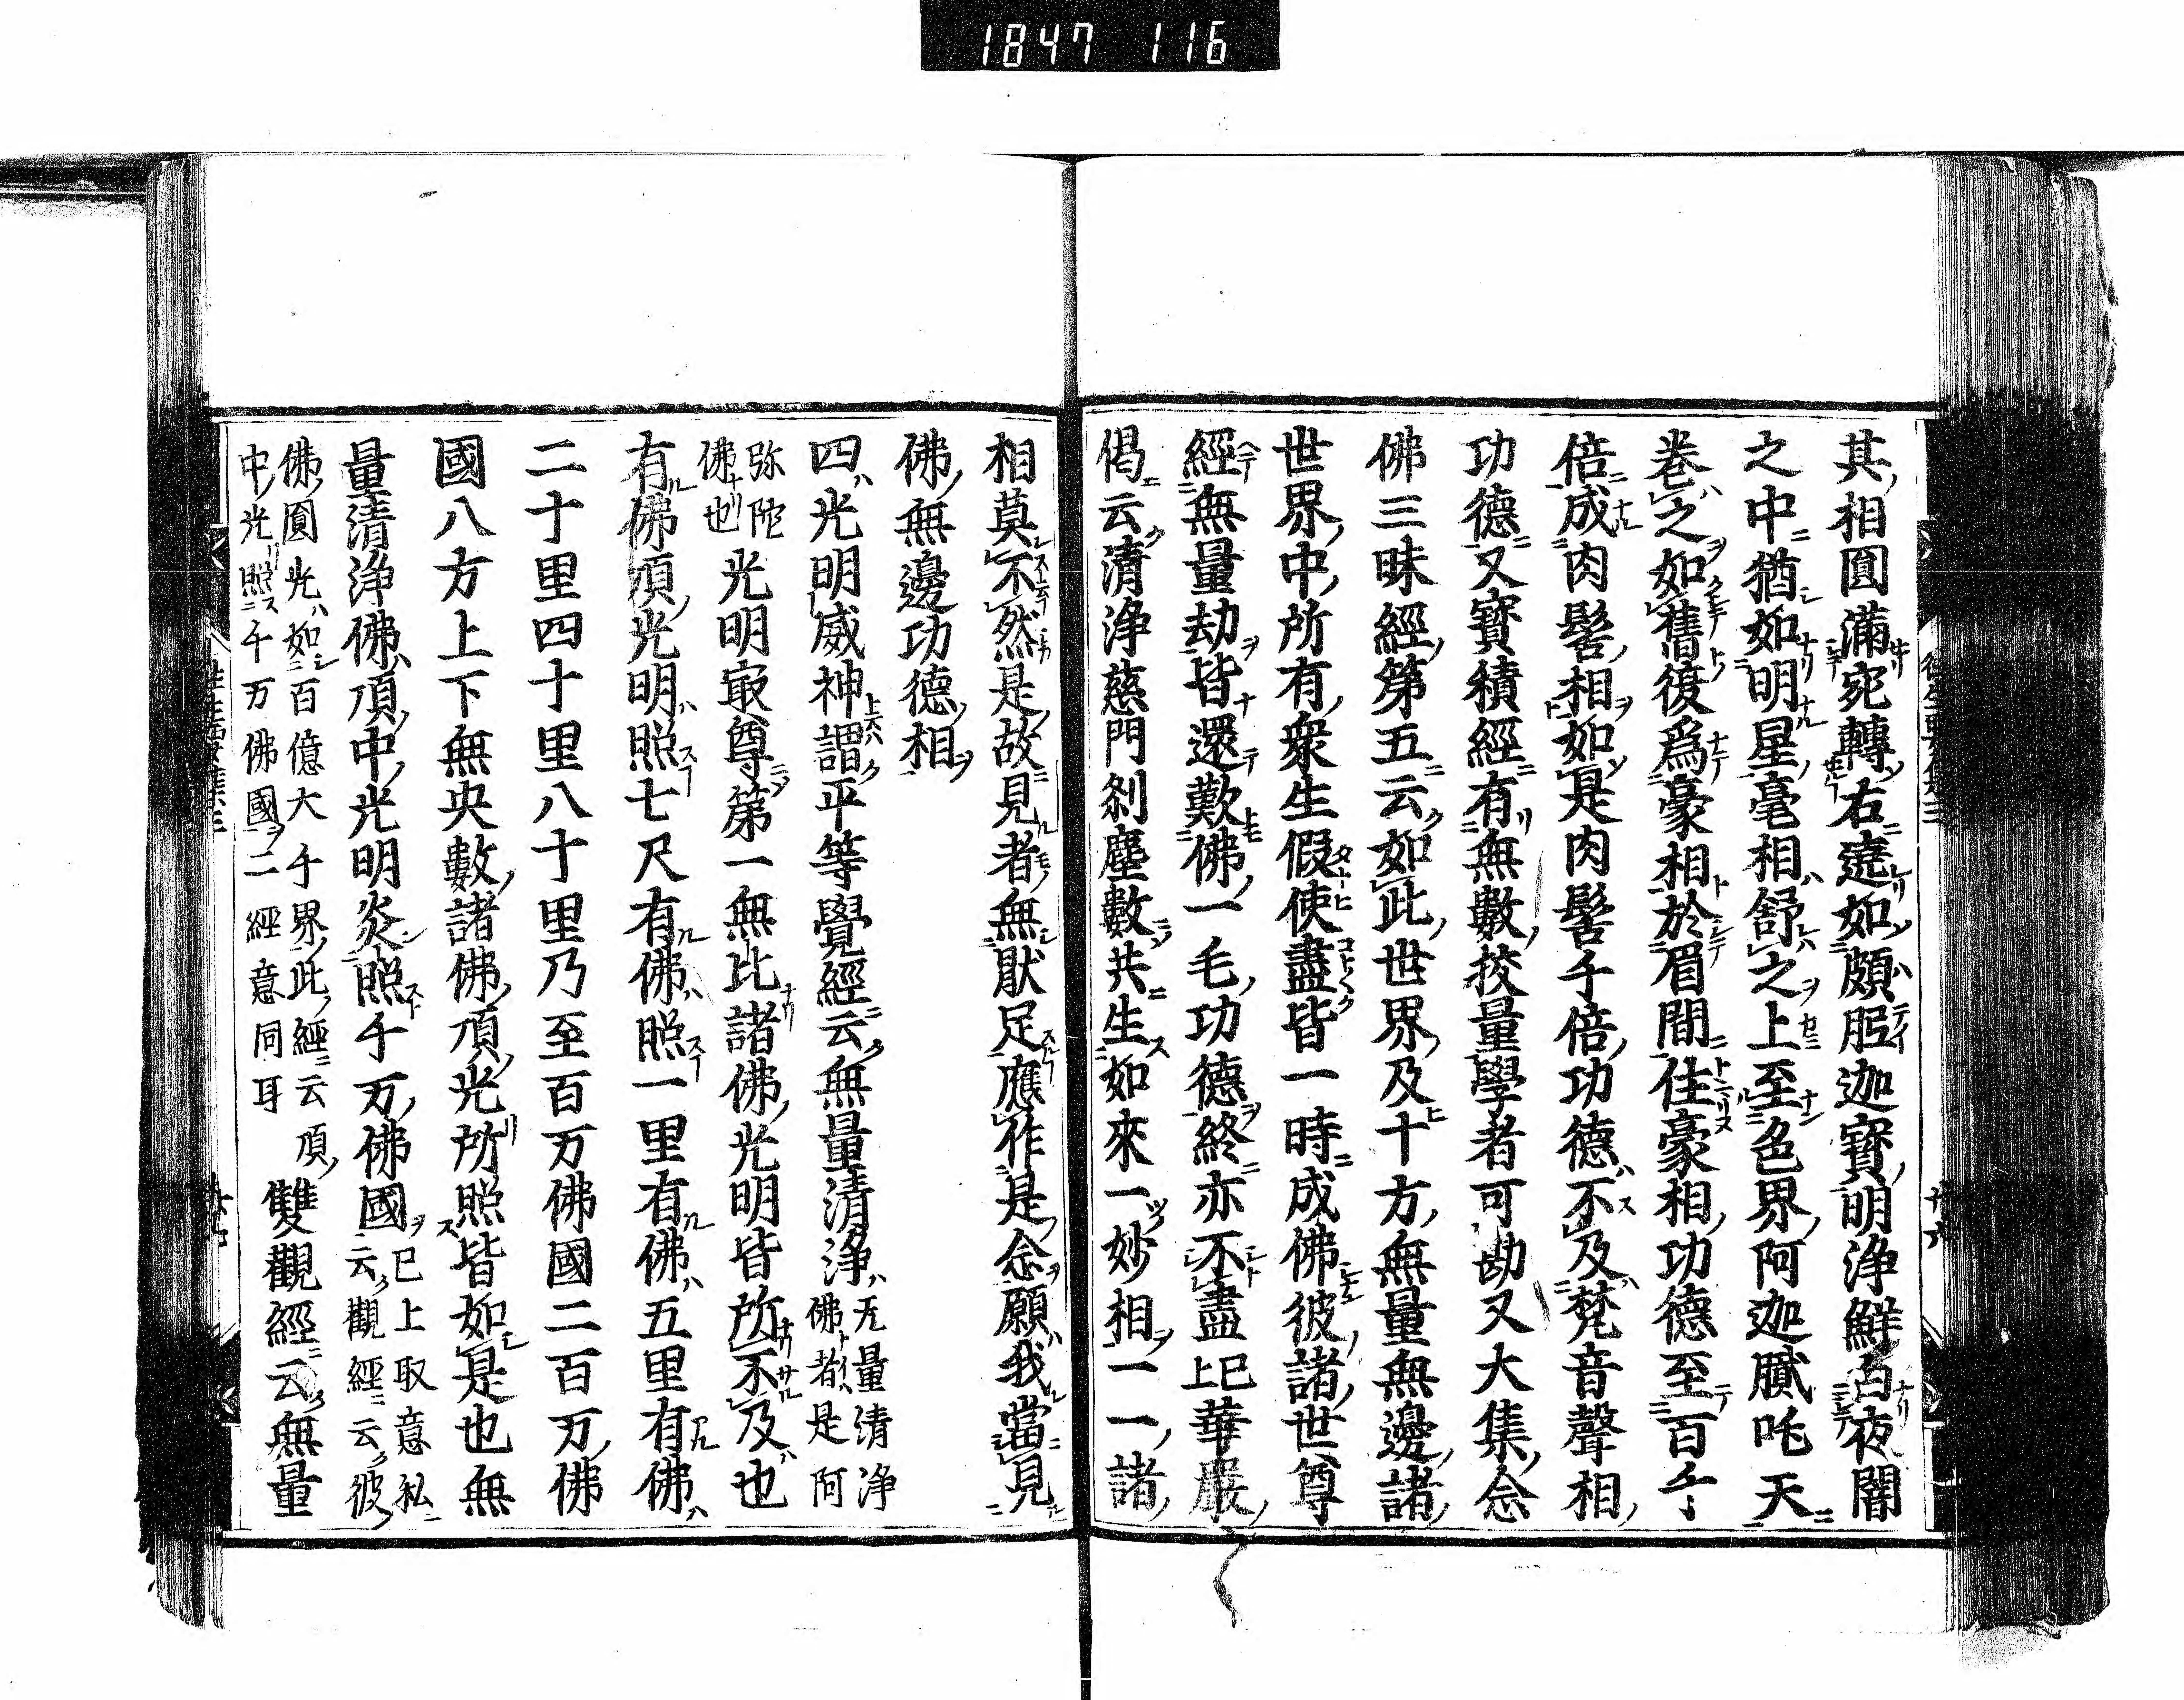 1847 116
其相圓滿宛轉右遶如頗胝迦寶明淨鮮白夜闇
之中猶如明星毫相舒之上至色界阿迦膩吒天
卷之如舊復爲毫相於眉間住毫相功德至百千
倍成肉髻相如是肉髻千倍功德不及梵音聲相
功德又寶積經有無數挍量學者可勘又大集念
佛三昧經第五云如此世界及十方無量無邊諸
世界中所有衆生假使盡皆一時成佛彼諸世尊
經無量劫皆還歎佛一毛功德終亦不盡已上華嚴
偈云清淨慈門刹塵數共生如來一妙相一一諸
相莫不然是故見者無猒足應作是念願我當見
佛無邊功德相
四光明威神謂平等覺經云無量清淨无量清淨佛者是阿
弥陀佛也光明㝡尊第一無比諸佛光明皆所不及也
有佛頂光明照七尺有佛照一里有佛五里有佛
二十里四十里八十里乃至百万佛國二百万佛
國八方上下無央數諸佛頂光所照皆如是也無
量清淨佛頂中光明炎照千万佛國已上取意私云觀經云彼
佛圓光如百億大千界此經云頂中光照千万佛國二經意同耳雙觀經云無量